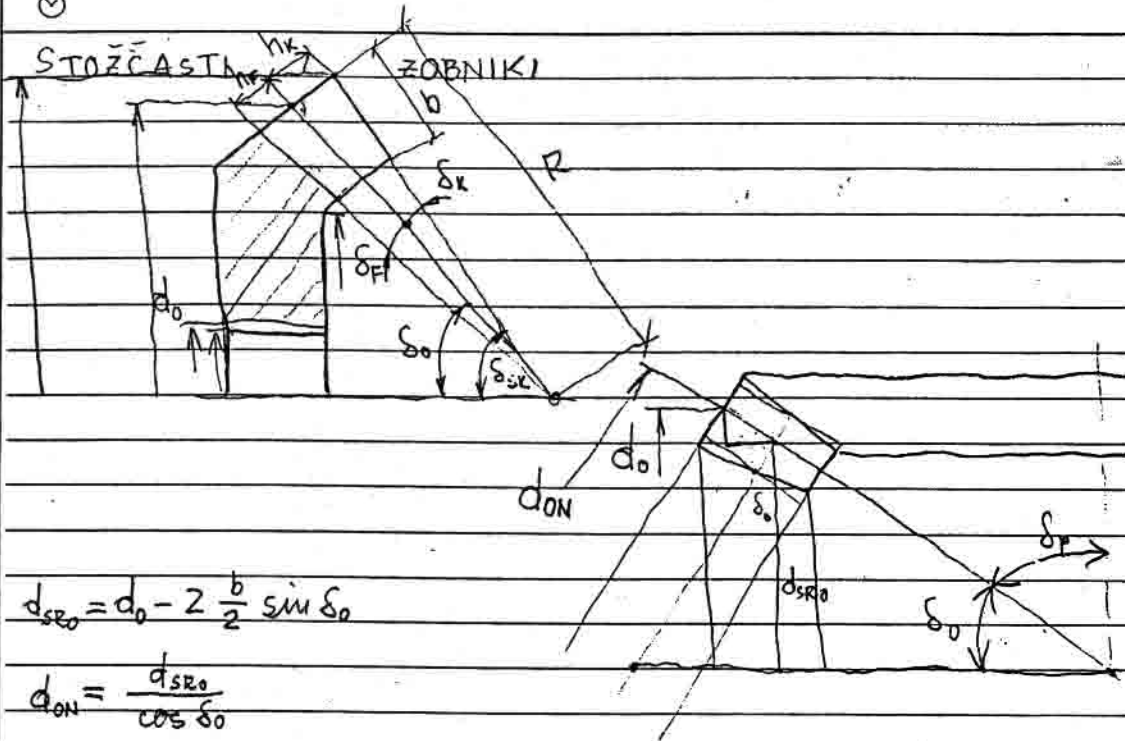 STOŽČASTI ZOBNIKI
hk
hF
b
R
δk
δF
d₀
δ₀
δsk
d₀
dON
δ₀
dSR₀
δp
δ₀
dSR₀ = d₀ - 2 b/2 sin δ₀
dON = dSR₀ / cos δ₀